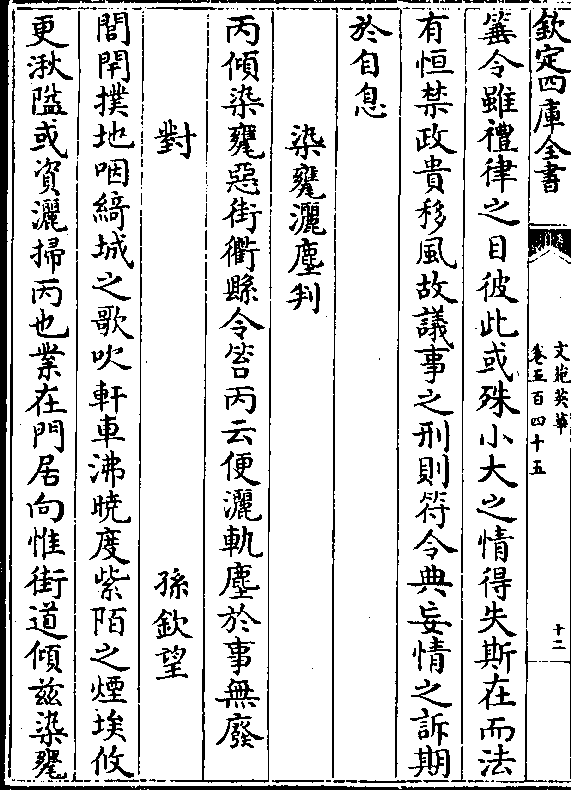 欽定四庫全書
文苑英華
卷五百四十五
十二
篝令雖禮律之目彼此或殊小大之情得失斯在而法
有恒禁政貴移風故議事之刑則符令典妄情之訴期
於自息
染甕灑塵判
丙傾染甕惡街衢縣令笞丙云便灑軌塵於事無廢
對
孫欽望
閭閈撲地咽綺城之歌吹軒車沸曉度紫陌之煙埃攸
更湫隘或資灑掃丙也業在門居向惟街道傾兹染甕